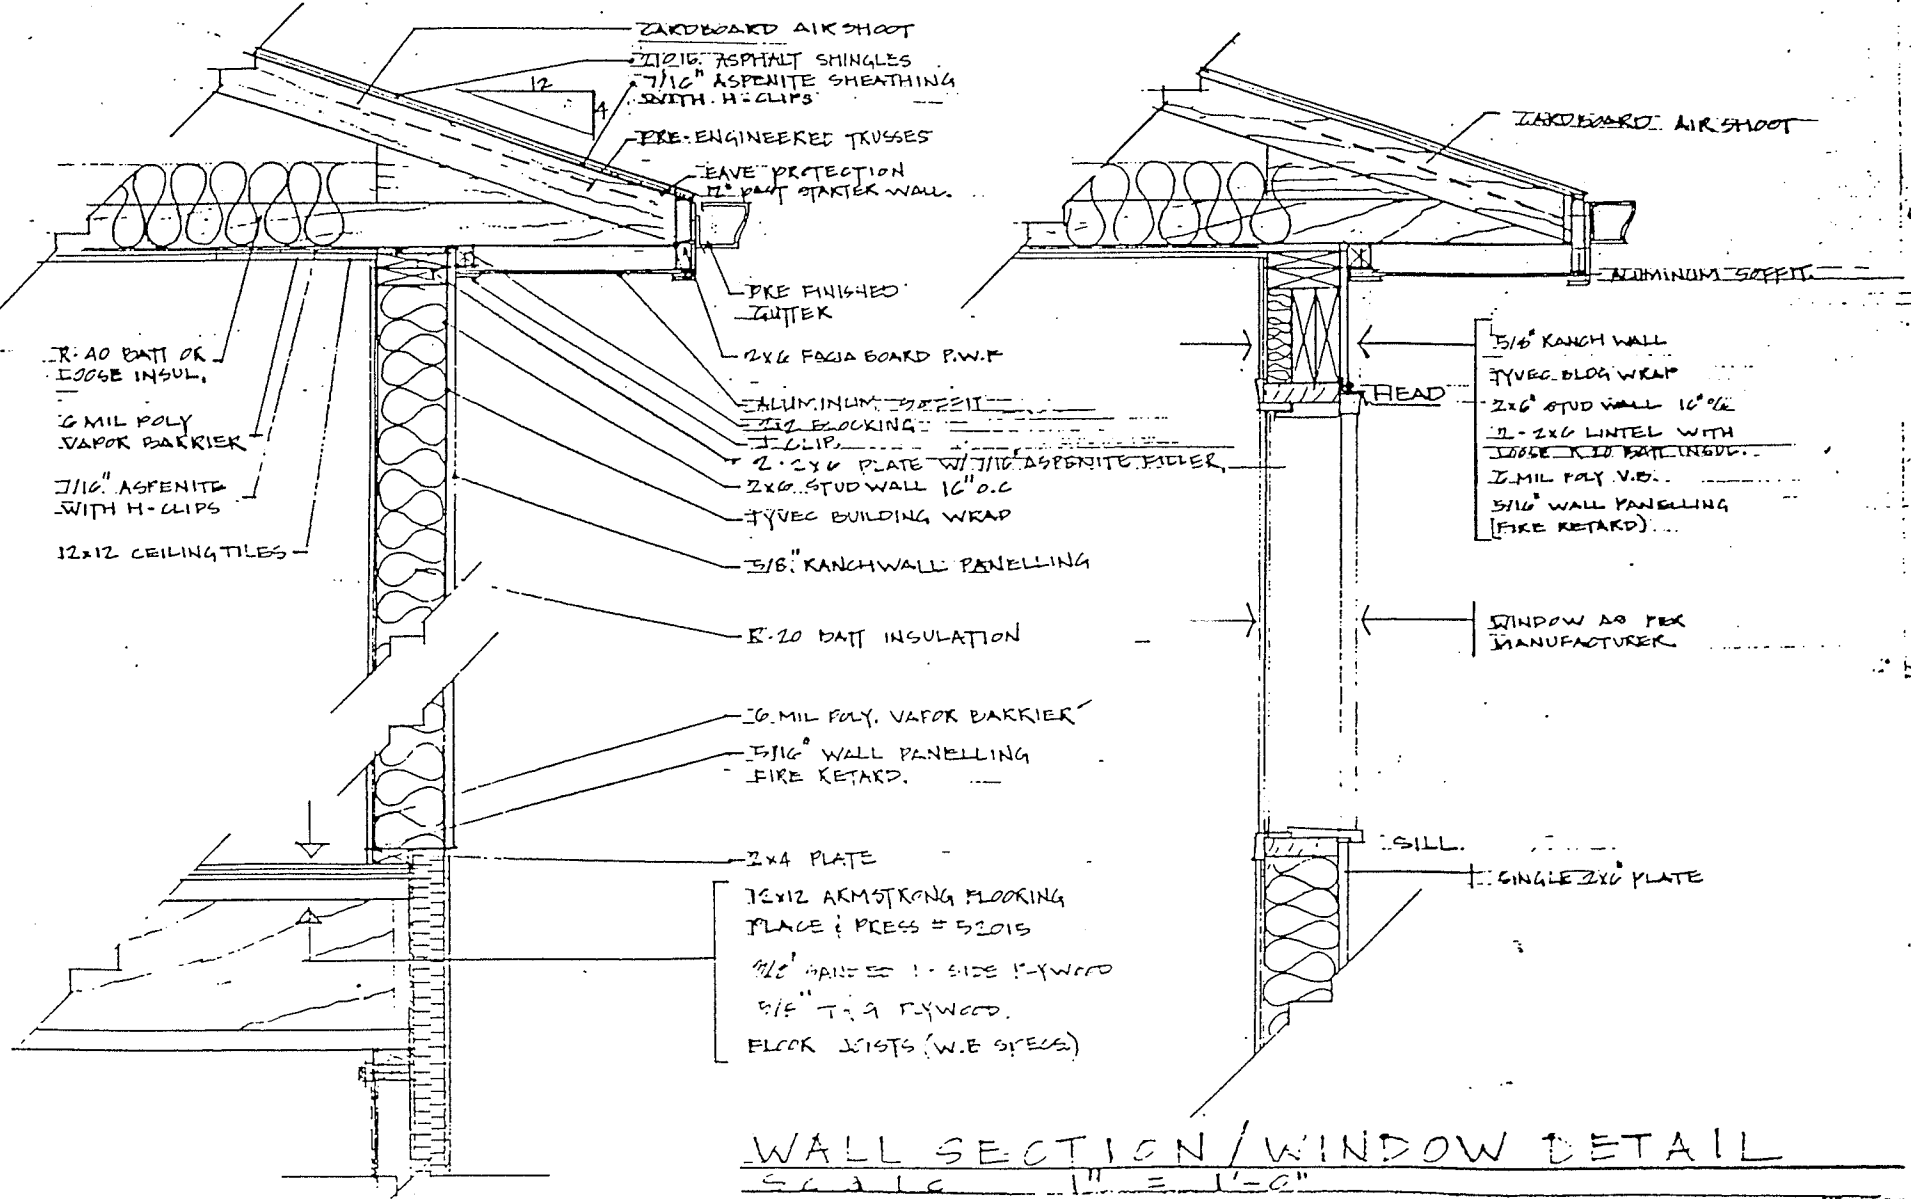 CARDBOARD AIR SHOOT
210 LB. ASPHALT SHINGLES
7/16" ASPENITE SHEATHING
WITH H-CLIPS
12
4
PRE-ENGINEERED TRUSSES
EAVE PROTECTION
PAST STARTER WALL.
PRE FINISHED
GUTTER
2x6 FACIA BOARD P.W.F
ALUMINUM SOFFIT
2x2 BLOCKING
J CLIP.
2-2x6 PLATE W/ 7/16" ASPENITE FILLER
2x6 STUD WALL 16" O.C
TYVEC BUILDING WRAP
5/8" RANCHWALL PANELLING
R-20 BATT INSULATION
6 MIL POLY. VAPOR BARRIER
5/16" WALL PANELLING
FIRE RETARD.
2x4 PLATE
12x12 ARMSTRONG FLOORING
PLACE & PRESS # 52015
SANDED 1-SIDE PLYWOOD
5/8" T & G PLYWOOD.
FLOOR JOISTS (W.E SPECS)
R-40 BATT OR
LOOSE INSUL.
6 MIL POLY
VAPOR BARRIER
7/16" ASPENITE
WITH H-CLIPS
12x12 CEILING TILES
CARDBOARD AIR SHOOT
ALUMINUM SOFFIT
5/8" RANCH WALL
TYVEC BLDG WRAP
2x6 STUD WALL 16" O/C
2-2x6 LINTEL WITH
LOOSE R20 BATT INSUL.
6 MIL POLY V.B.
5/16" WALL PANELLING
(FIRE RETARD)
HEAD
WINDOW AS PER
MANUFACTURER
SILL
SINGLE 2x6 PLATE
WALL SECTION / WINDOW DETAIL
SCALE 1" = 1'-0"